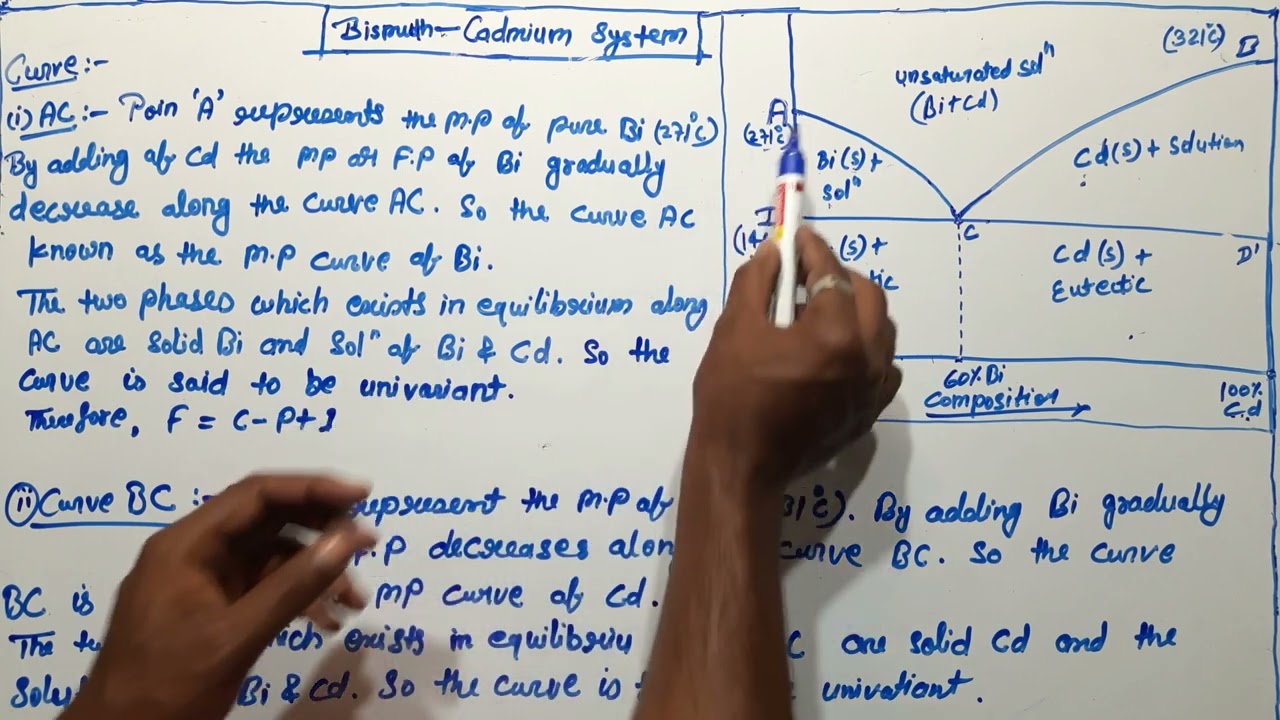 Bismuth-Cadmium System
Curve:-
(i) AC:- Poin 'A' represents the m.p of pure Bi (271°C)
By adding of Cd the mp or F.P of Bi gradually
decrease along the curve AC. So the curve AC
known as the m.p curve of Bi.
The two phases which exists in equilibrium along
AC are solid Bi and Solⁿ of Bi & Cd. So the
curve is said to be univariant.
Therefore, F = C-P+1
(ii) Curve BC :- represent the m.p of By adding Bi gradually
F.P decreases curve BC. So the curve
BC is MP curve of Cd.
The exists in equilibriu are solid Cd and the
Bi & Cd. So the curve is univatiant.
(321°C) B
unsaturated solⁿ
(Bi+Cd)
A
(271°C)
Bi(s)+
solⁿ
Cd(s) + Solution
I
C
D'
(s)+
Cd(s) +
Eutectic
60% Bi
Composition
100%
Cd